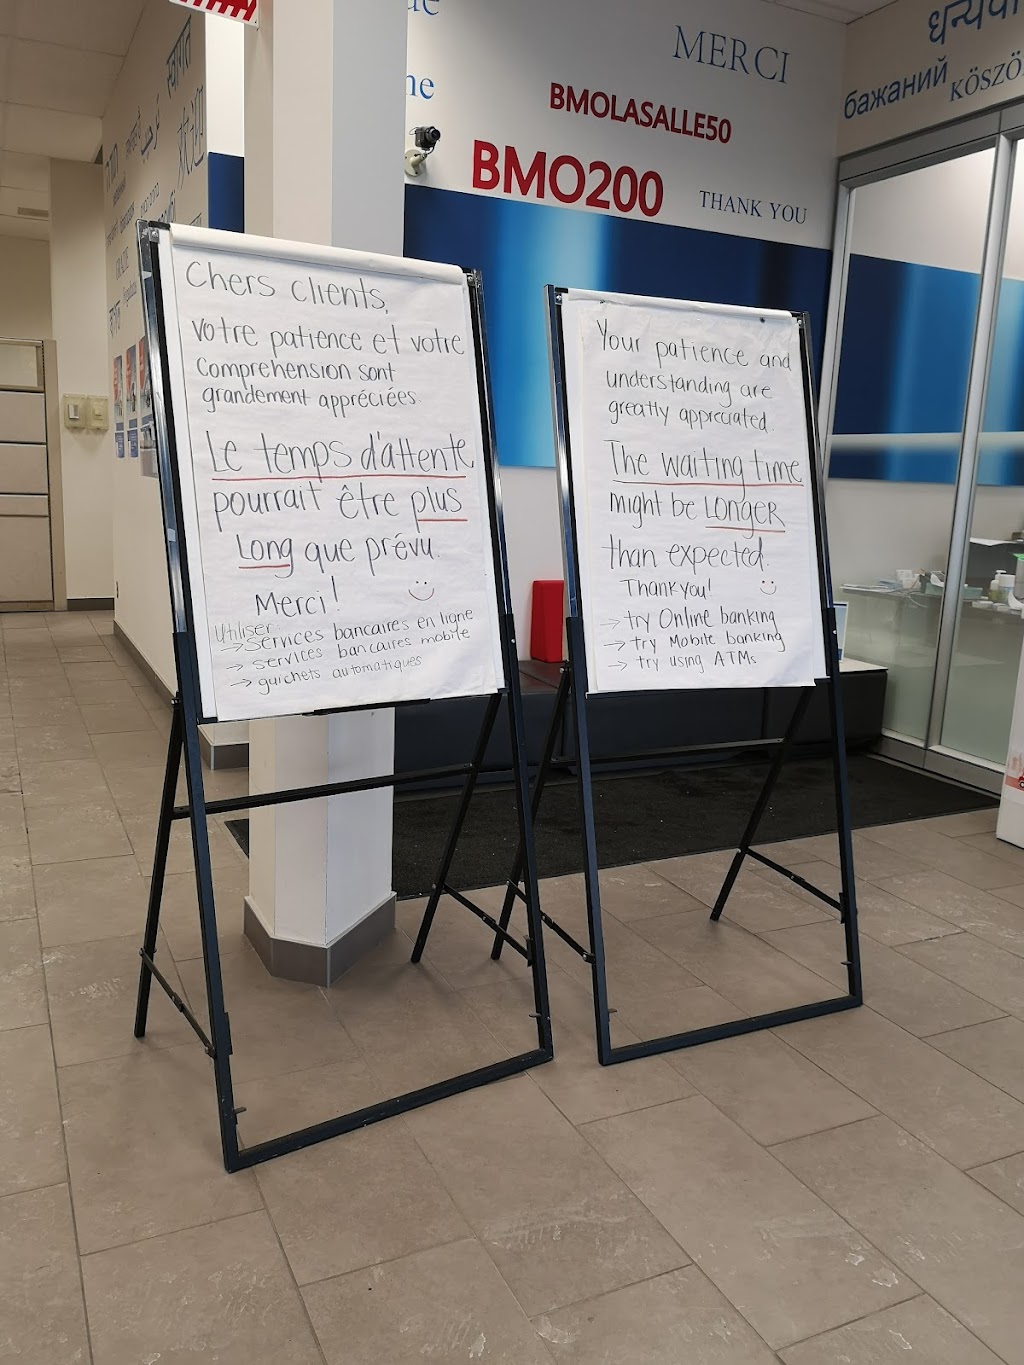 MERCI
BMOLASALLE50
BMO200
THANK YOU
бажаний
Chers clients,
votre patience et votre
Comprehension sont
grandement appréciées.
Le temps d'attente
pourrait être plus
Long que prévu.
Merci!
Utiliser
→ Services bancaires en ligne
→ services bancaires mobile
→ guichets automatiques
Your patience and
understanding are
greatly appreciated.
The waiting time
might be LONGER
than expected!
Thank you!
→ try Online banking
→ try Mobile banking
→ try using ATMs